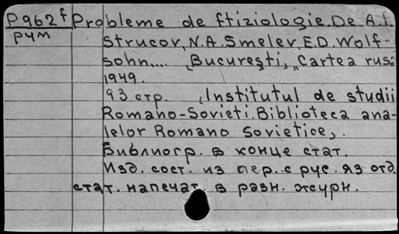 P962f Probleme de ftiziologie. De A.I.
рум Strucov, N.A. Smelev, E.D. Wolf-
sohn... București, "Cartea rusă"
1949.
93 стр. (Institutul de studii
Romano-Sovieti. Biblioteca ana-
lelor Romano Sovietice).
Библиогр. в конце стат.
Изд. сост. из пер. с рус. яз отд.
стат. напечат. в разн. журн.